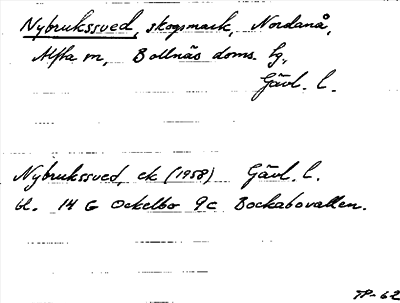 Nybrukssved, skogsmark, Nordanå,
Alfta sn, Bollnäs doms. hg,
Gävl. l.
Nybrukssved, ek (1958) Gävl. l.
bl. 14 G Ockelbo 9c Bockabovallen.
TP-62